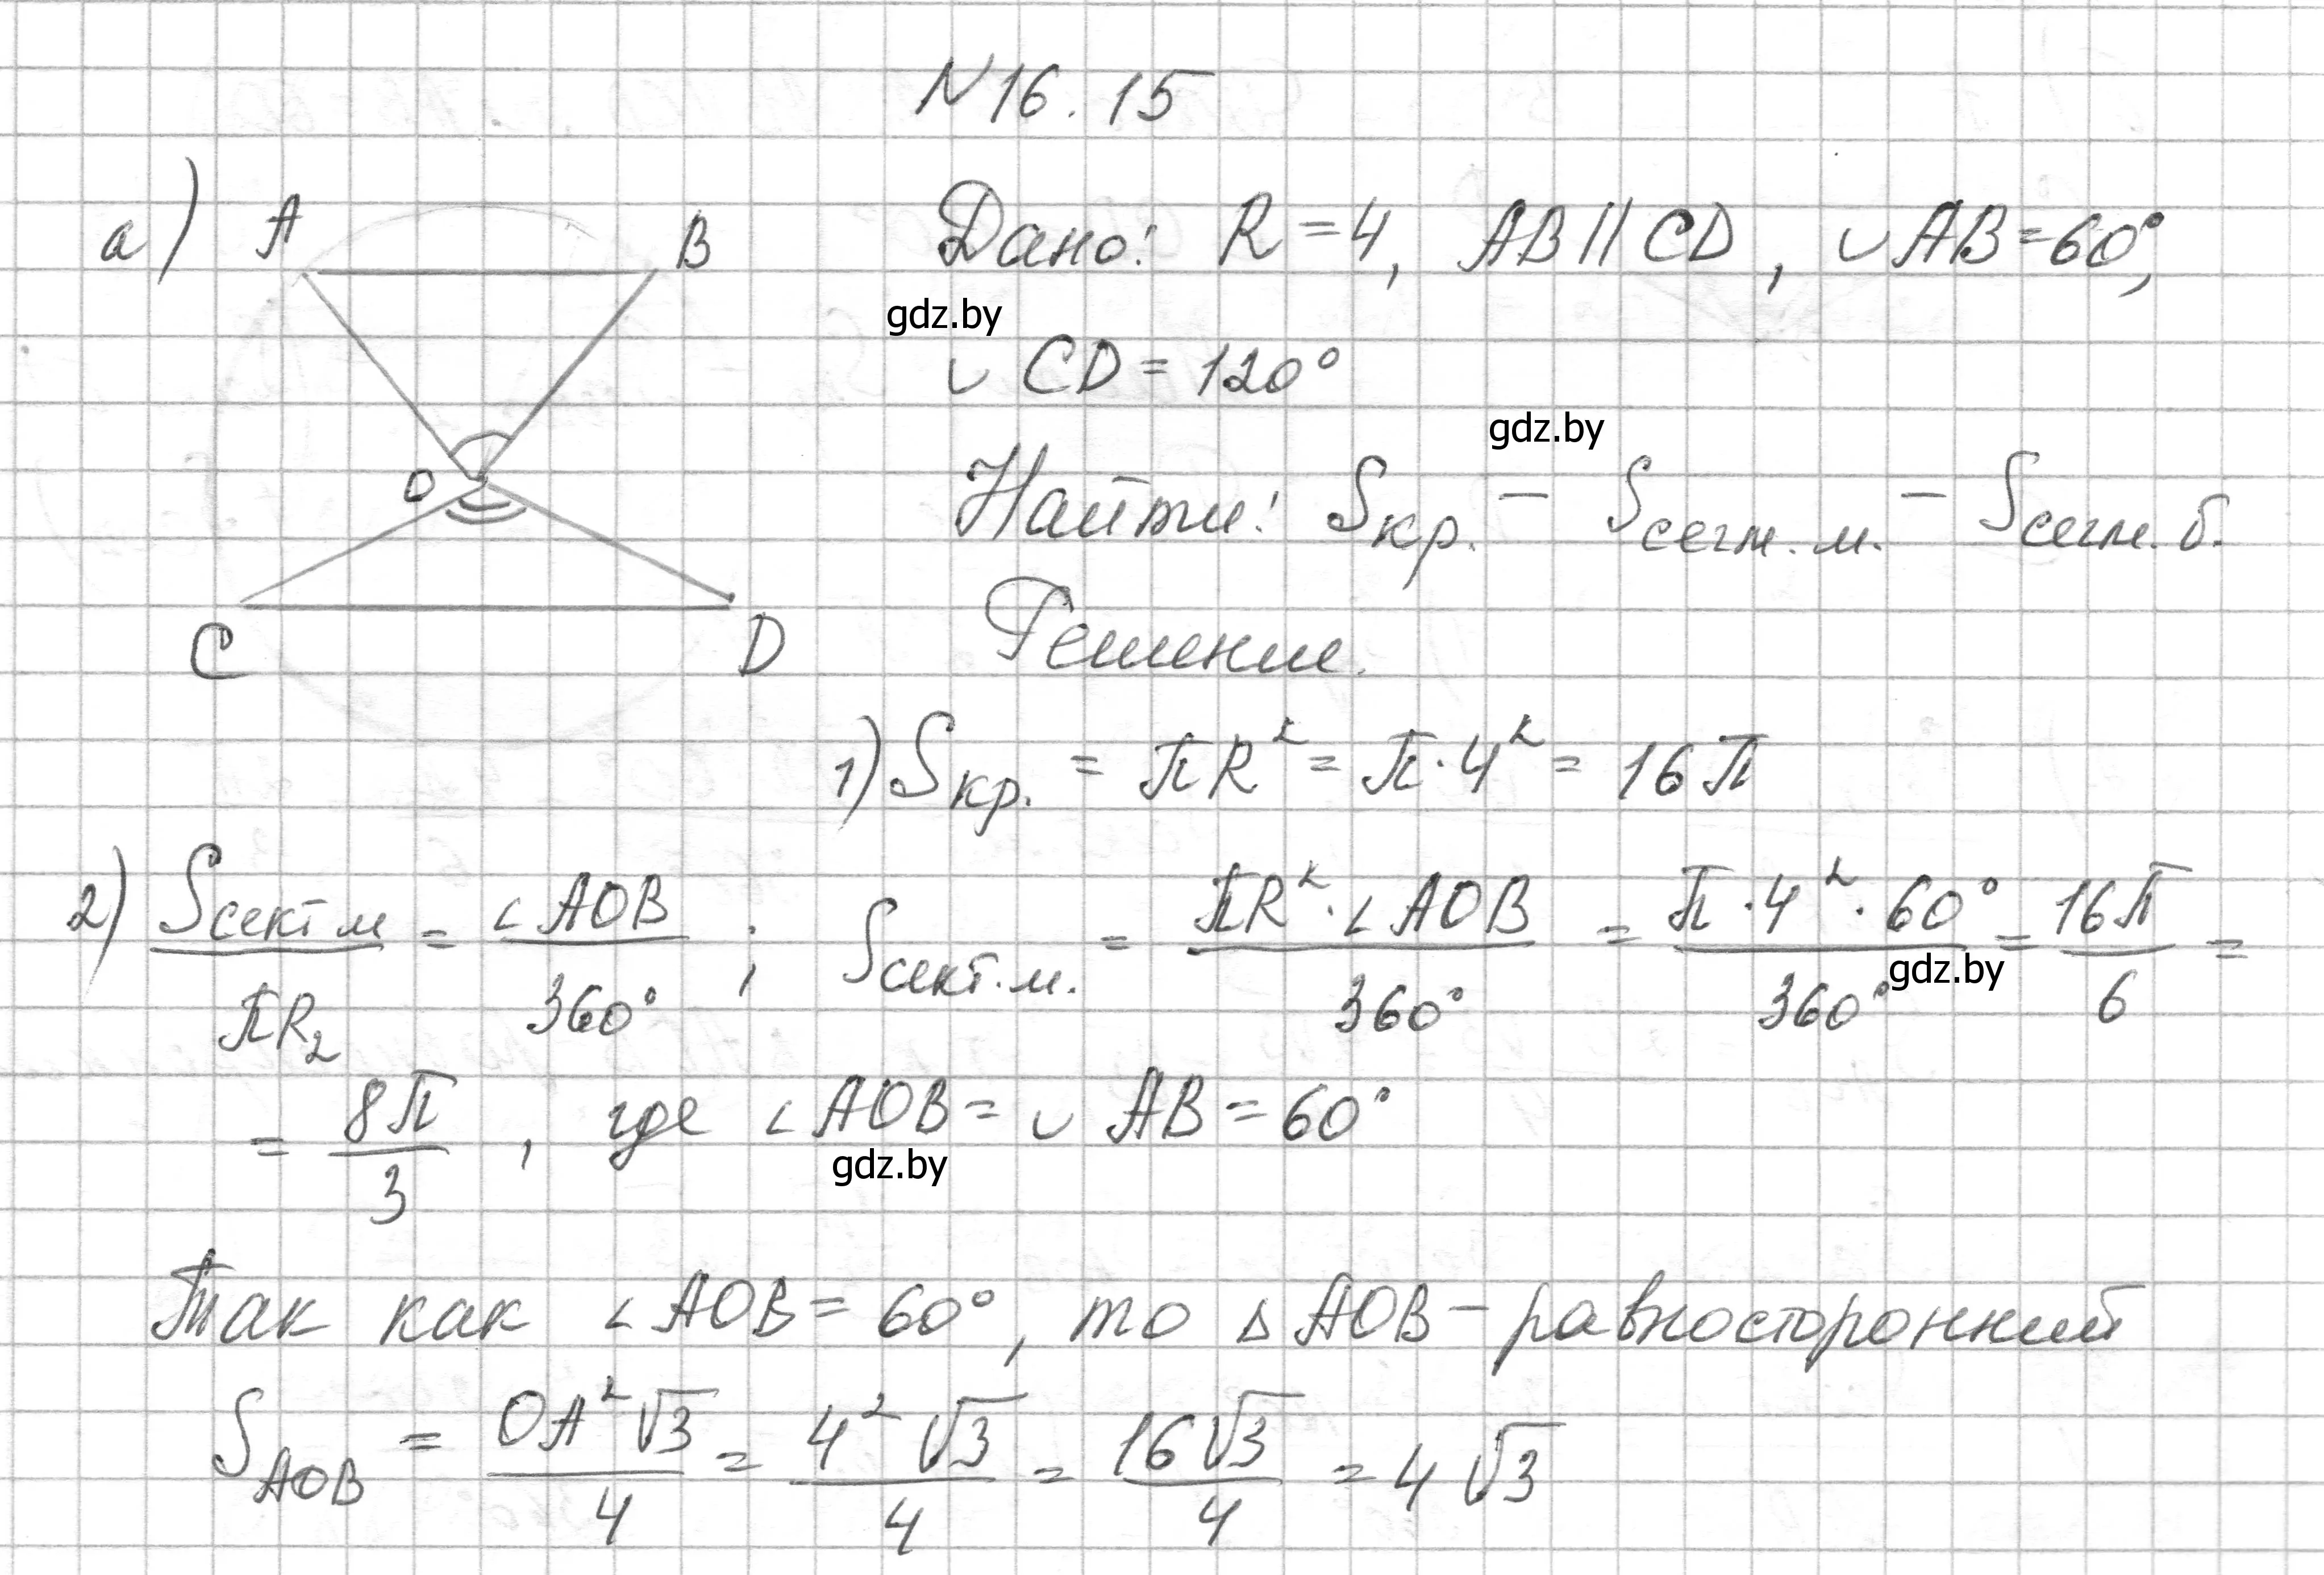 N16.15
а) A B
Дано: R = 4, AB || CD, ◡ AB = 60°,
gdz.by
◡ CD = 120°
gdz.by
O
Найти: Sкр. – Sсегм.м. – Sсегм.б.
Решение.
C D
1) Sкр. = πR² = π·4² = 16π
2) Sсект м / πR₂ = ∠AOB / 360° ; Sсект.м. = πR²·∠AOB / 360° = π·4²·60° / 360° = 16π / 6 =
gdz.by
= 8π / 3 , где ∠AOB = ◡ AB = 60°
gdz.by
Так как ∠AOB = 60°, то Δ AOB – равносторонний
S AOB = OA²√3 / 4 = 4²√3 / 4 = 16√3 / 4 = 4√3